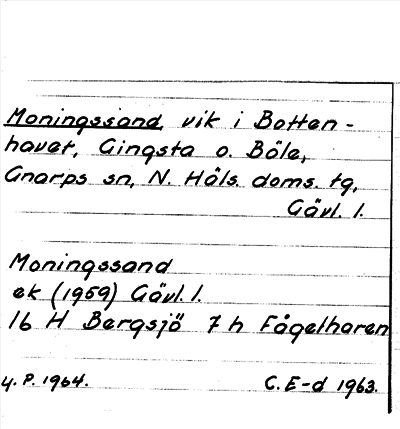 Moningssand, vik i Botten-
havet, Gingsta o. Böle,
Gnarps sn, N. Häls. doms. tg,
Gävl. l.
Moningssand
ek (1959) Gävl. l.
16 H Bergsjö 7 h Fågelharen
4. P. 1964. C. E-d 1963.